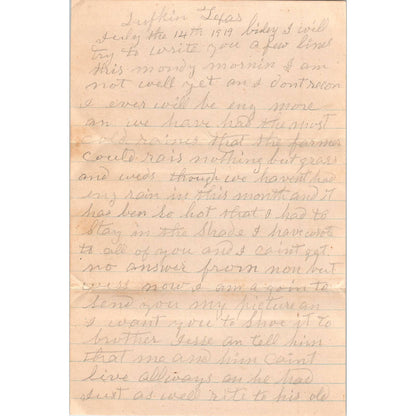 Lufkin Texas
July the 14th 1919 I will
try to write you a few lines
this mondy mornin I am
not well yet an I dont recon
I ever will be eny more
an we have had the most
cold raines that the farmer
could rais nothing but grass
and weds though we havent had
eny rain in this month and it
has ben so hot that I had to
stay in the shade I have wrote
to all of you and I caint get
no answer from non but
now I am a goin to
send you my picture an
I want you to shoe it to
brother Jesse an tell him
that me and him caint
live allways an he had
just as well rite to his old